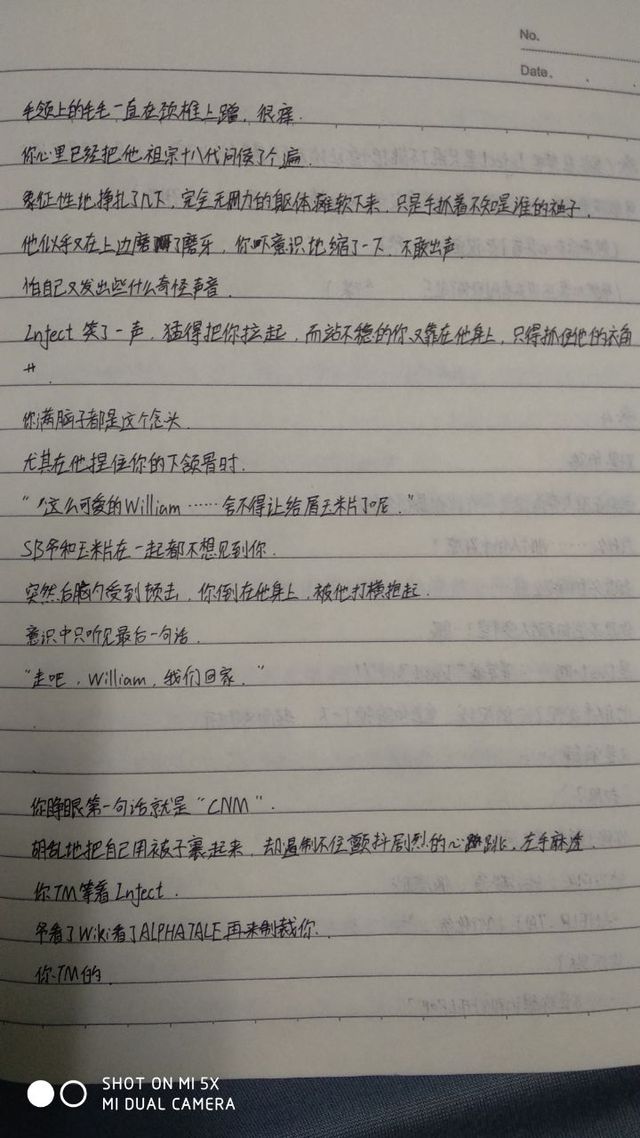 No.
Date.
毛领上的毛毛一直在颈椎上蹭，很痒.
你心里已经把他祖宗十八代问候了个遍.
象征性地挣扎了几下，完全无力的躯体瘫软下来，只是手抓着不知是谁的袖子.
他似乎又在上边磨了磨牙，你下意识地缩了一下，不敢出声
怕自己又发出些什么奇怪声音.
Inject 笑了一声，猛得把你拉起，而站不稳的你又靠在他身上，只得抓住他的衣角
艹.
你满脑子都是这个念头.
尤其在他捏住你的下颌骨时.
“这么可爱的William……舍不得让给眉玉米片了呢."
SB爷和玉米片在一起都不想见到你.
突然后脑勺受到顿击，你倒在他身上，被他打横抱起.
意识中只听见最后一句话.
“走吧，William，我们回家."
你睁眼第一句话就是“CNM".
胡乱地把自己用被子裹起来，却遏制不住颤抖剧烈的心跳，左手麻
你TM等着Inject.
爷看了Wiki看了ALPHATALE再来制裁你.
你TM的.
SHOT ON MI 5X
MI DUAL CAMERA